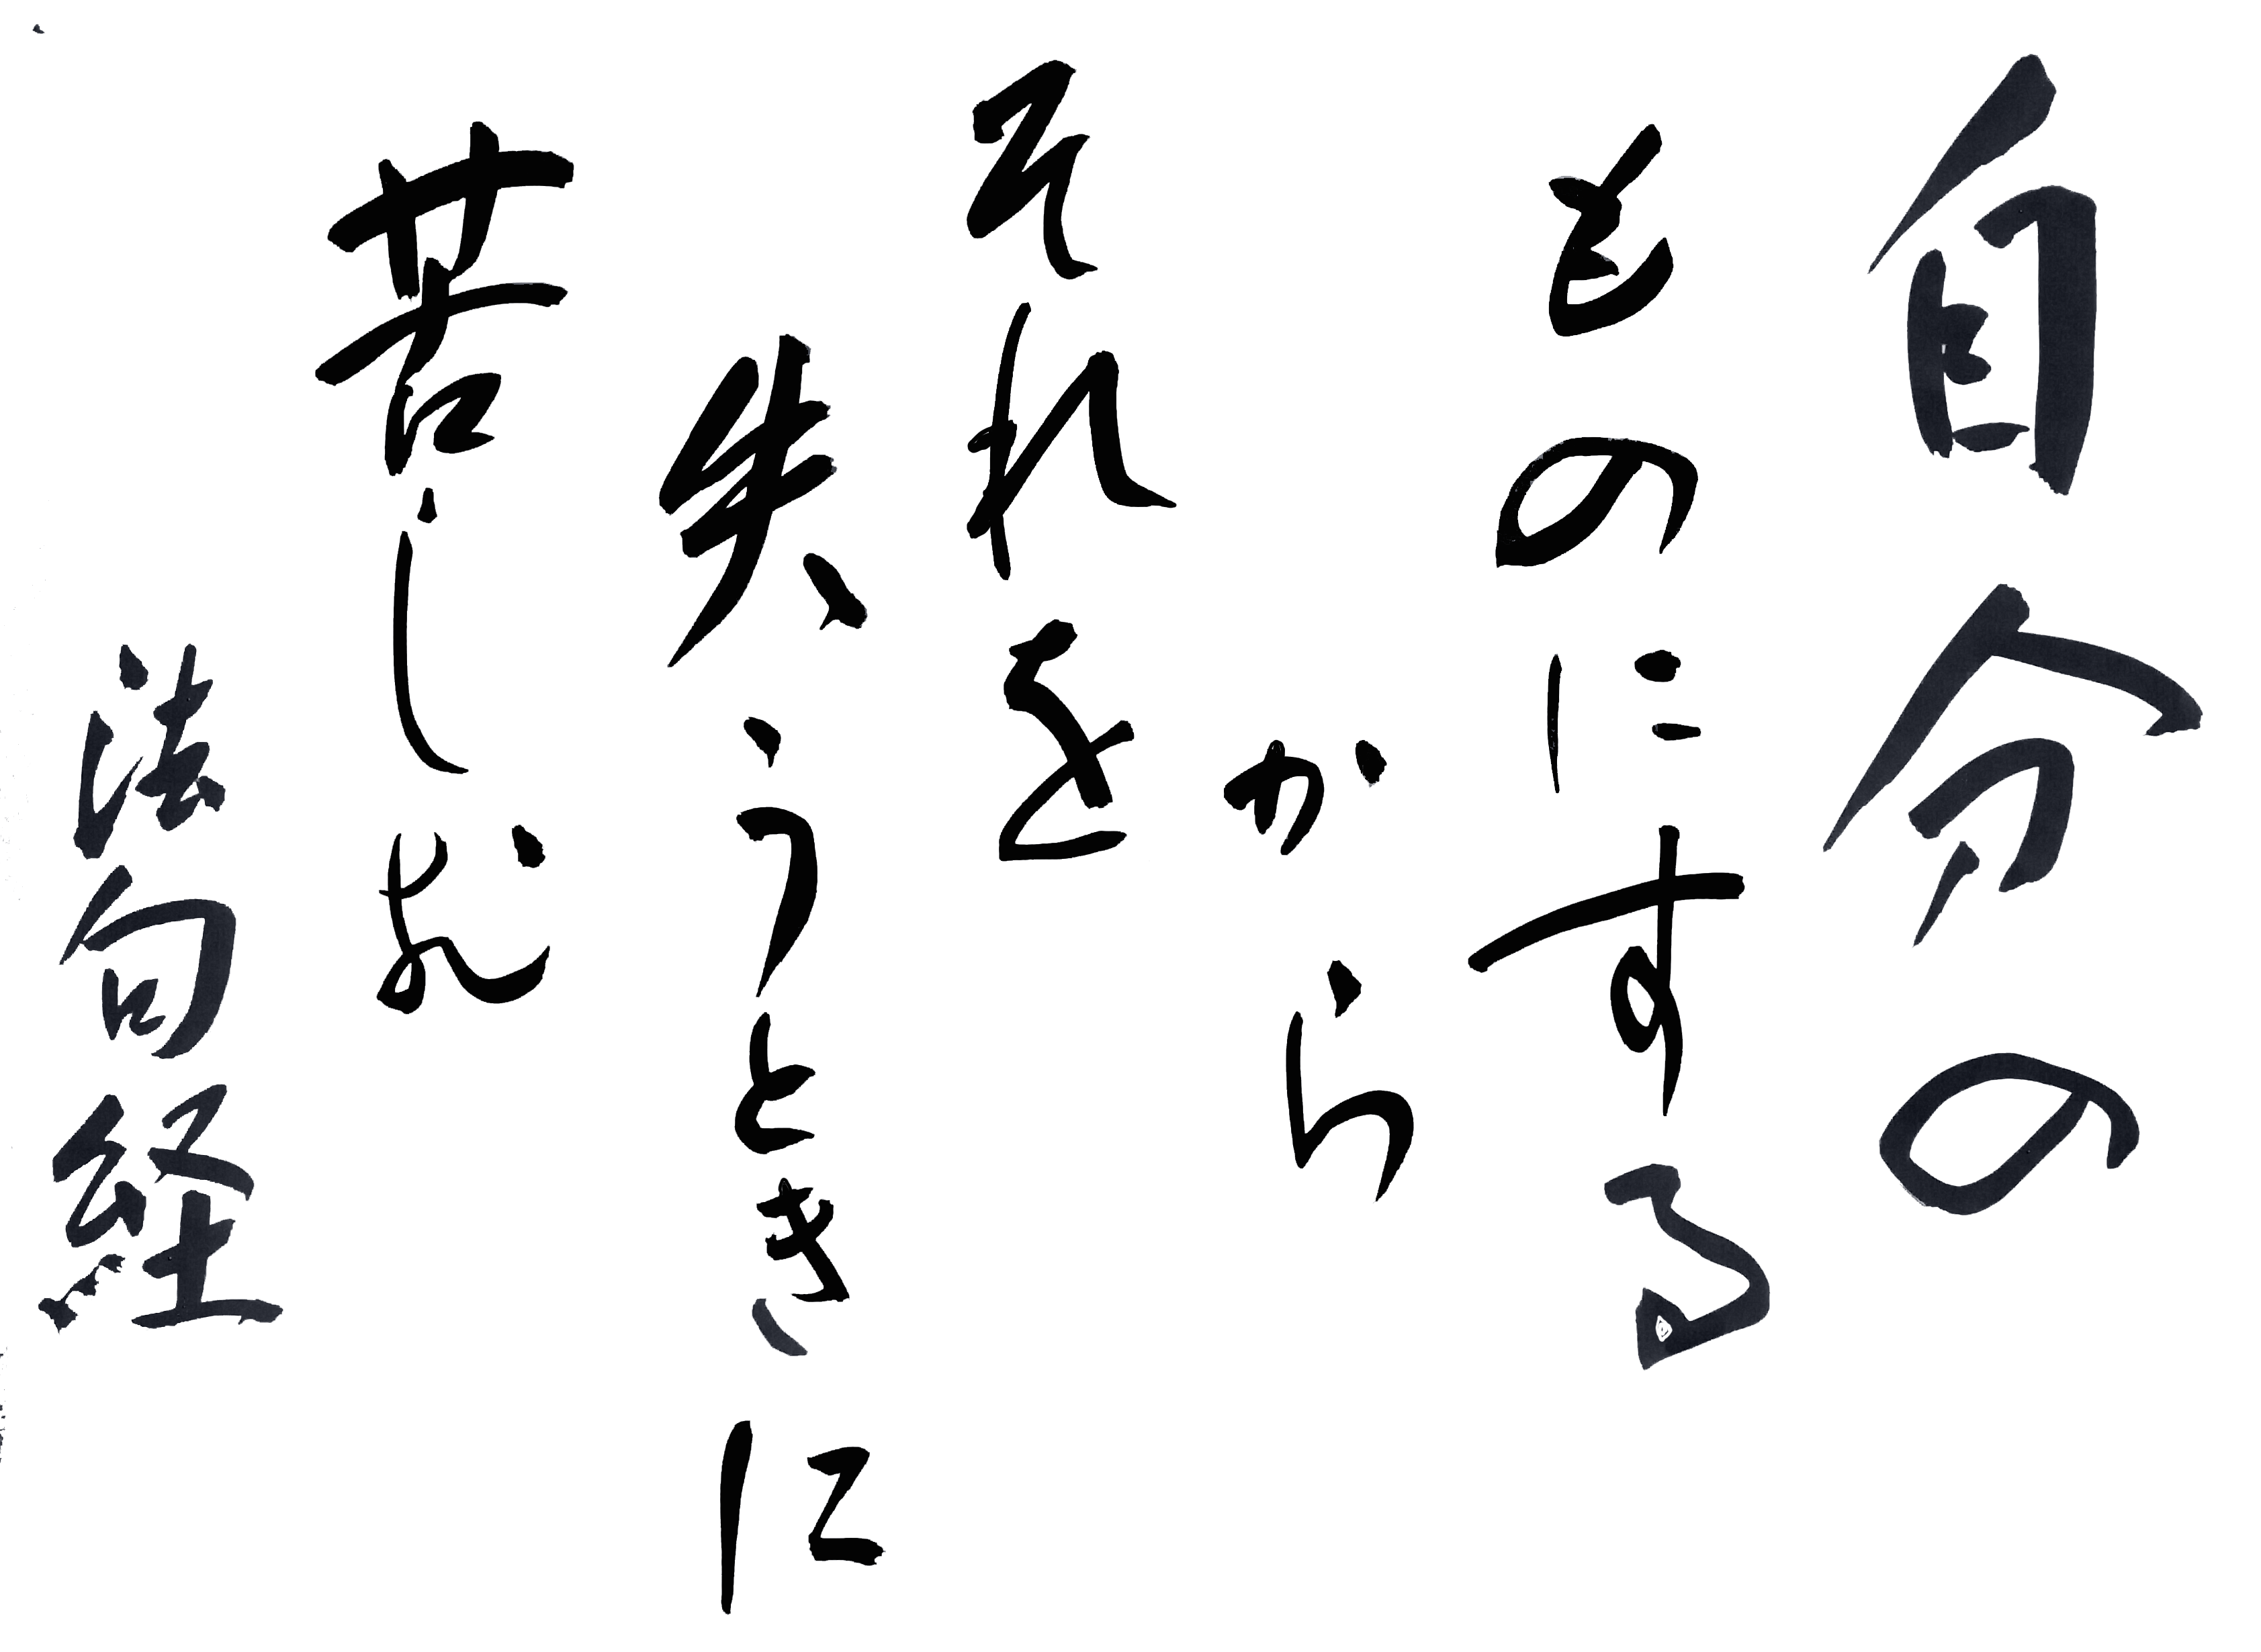 自分の
ものにする
から
それを
失うときに
苦しむ
法句経